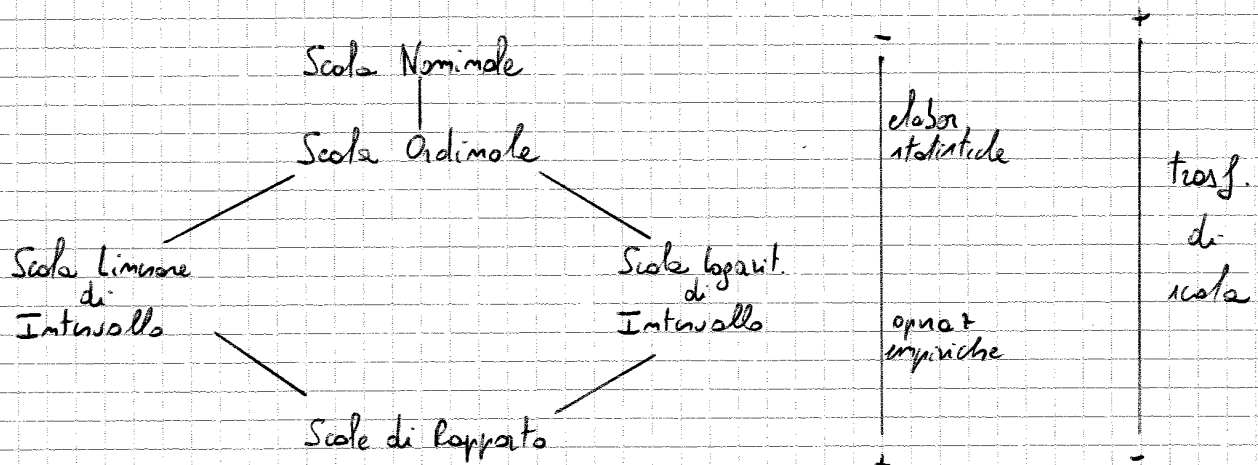 Scala Nominale
Scala Ordinale
Scala Lineare
di
Intervallo
Scala Logarit.
di
Intervallo
Scale di Rapporto
-
elabor.
statistiche
operaz
empiriche
+
+
trasf.
di
scala
-